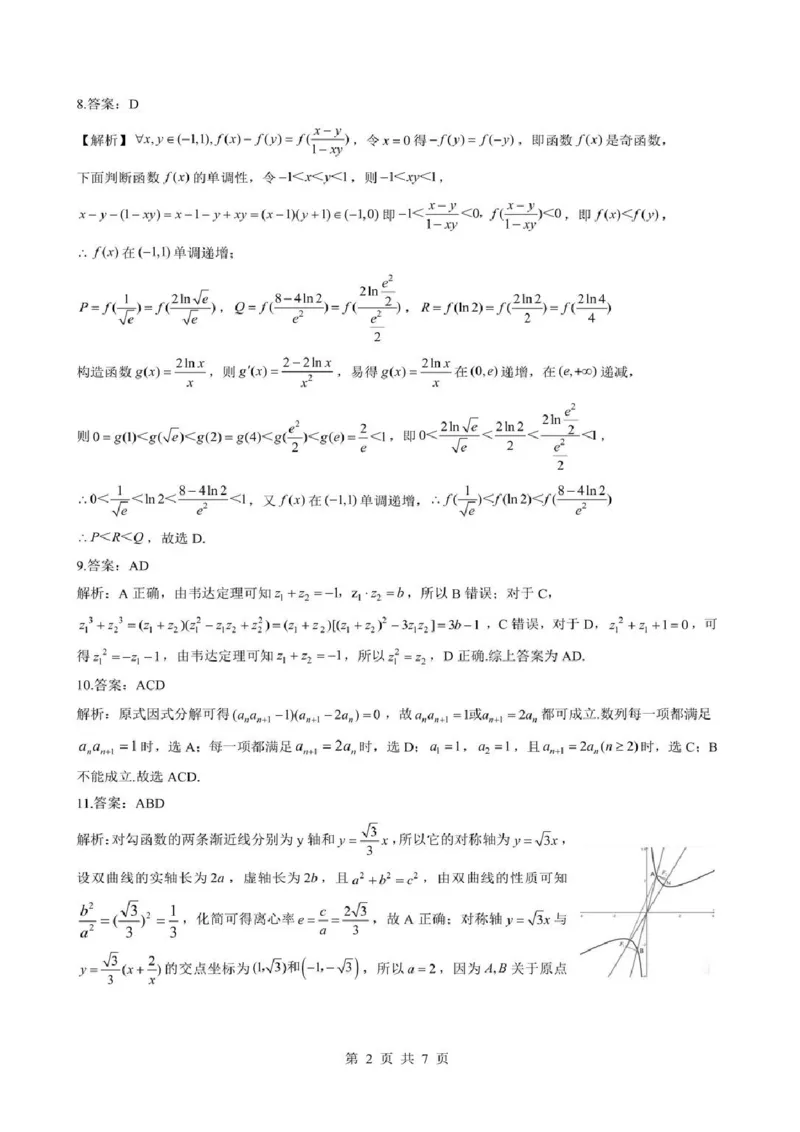 8.答案：D
【解析】∀x, y∈(−1,1), f(x)−f(y)=f((x−y)/(1−xy))，令x=0得−f(y)=f(−y)，即函数 f(x)是奇函数，
下面判断函数 f(x)的单调性，令−1<x<y<1，则−1<xy<1，
x−y−(1−xy)=x−1−y+xy=(x−1)(y+1)∈(−1,0)即−1<(x−y)/(1−xy)<0，f((x−y)/(1−xy))<0，即 f(x)<f(y)，
∴ f(x)在(−1,1)单调递增；
P=f(1/√e)=f((2ln√e)/√e)，Q=f((8−4ln2)/e²)=f((2ln(e²/2))/(e²/2))，R=f(ln2)=f((2ln2)/2)=f((2ln4)/4)
构造函数g(x)=(2lnx)/x，则g′(x)=(2−2lnx)/x²，易得g(x)=(2lnx)/x在(0,e)递增，在(e,+∞)递减，
则0=g(1)<g(√e)<g(2)=g(4)<g(e²/2)<g(e)=2/e<1，即0<(2ln√e)/√e<(2ln2)/2<(2ln(e²/2))/(e²/2)<1，
∴0<1/√e<ln2<(8−4ln2)/e²<1，又 f(x)在(−1,1)单调递增，∴ f(1/√e)<f(ln2)<f((8−4ln2)/e²)
∴P<R<Q，故选 D.
9.答案：AD
解析：A 正确，由韦达定理可知z₁+z₂=−1，z₁·z₂=b，所以 B 错误；对于 C，
z₁³+z₂³=(z₁+z₂)(z₁²−z₁z₂+z₂²)=(z₁+z₂)[(z₁+z₂)²−3z₁z₂]=3b−1，C 错误，对于 D，z₁²+z₁+1=0，可
得z₁²=−z₁−1，由韦达定理可知z₁+z₂=−1，所以z₁²=z₂，D 正确.综上答案为 AD.
10.答案：ACD
解析：原式因式分解可得(aₙaₙ₊₁−1)(aₙ₊₁−2aₙ)=0，故aₙaₙ₊₁=1或aₙ₊₁=2aₙ 都可成立.数列每一项都满足
aₙaₙ₊₁=1时，选 A；每一项都满足aₙ₊₁=2aₙ时，选 D；a₁=1，a₂=1，且aₙ₊₁=2aₙ(n≥2)时，选 C；B
不能成立.故选 ACD.
11.答案：ABD
解析：对勾函数的两条渐近线分别为 y 轴和y=(√3/3)x，所以它的对称轴为y=√3x，
设双曲线的实轴长为2a，虚轴长为2b，且a²+b²=c²，由双曲线的性质可知
b²/a²=(√3/3)²=1/3，化简可得离心率e=c/a=2√3/3，故 A 正确；对称轴 y=√3x与
y=(√3/3)(x+2/x)的交点坐标为(1,√3)和(−1,−√3)，所以a=2，因为A,B关于原点
第 2 页 共 7 页